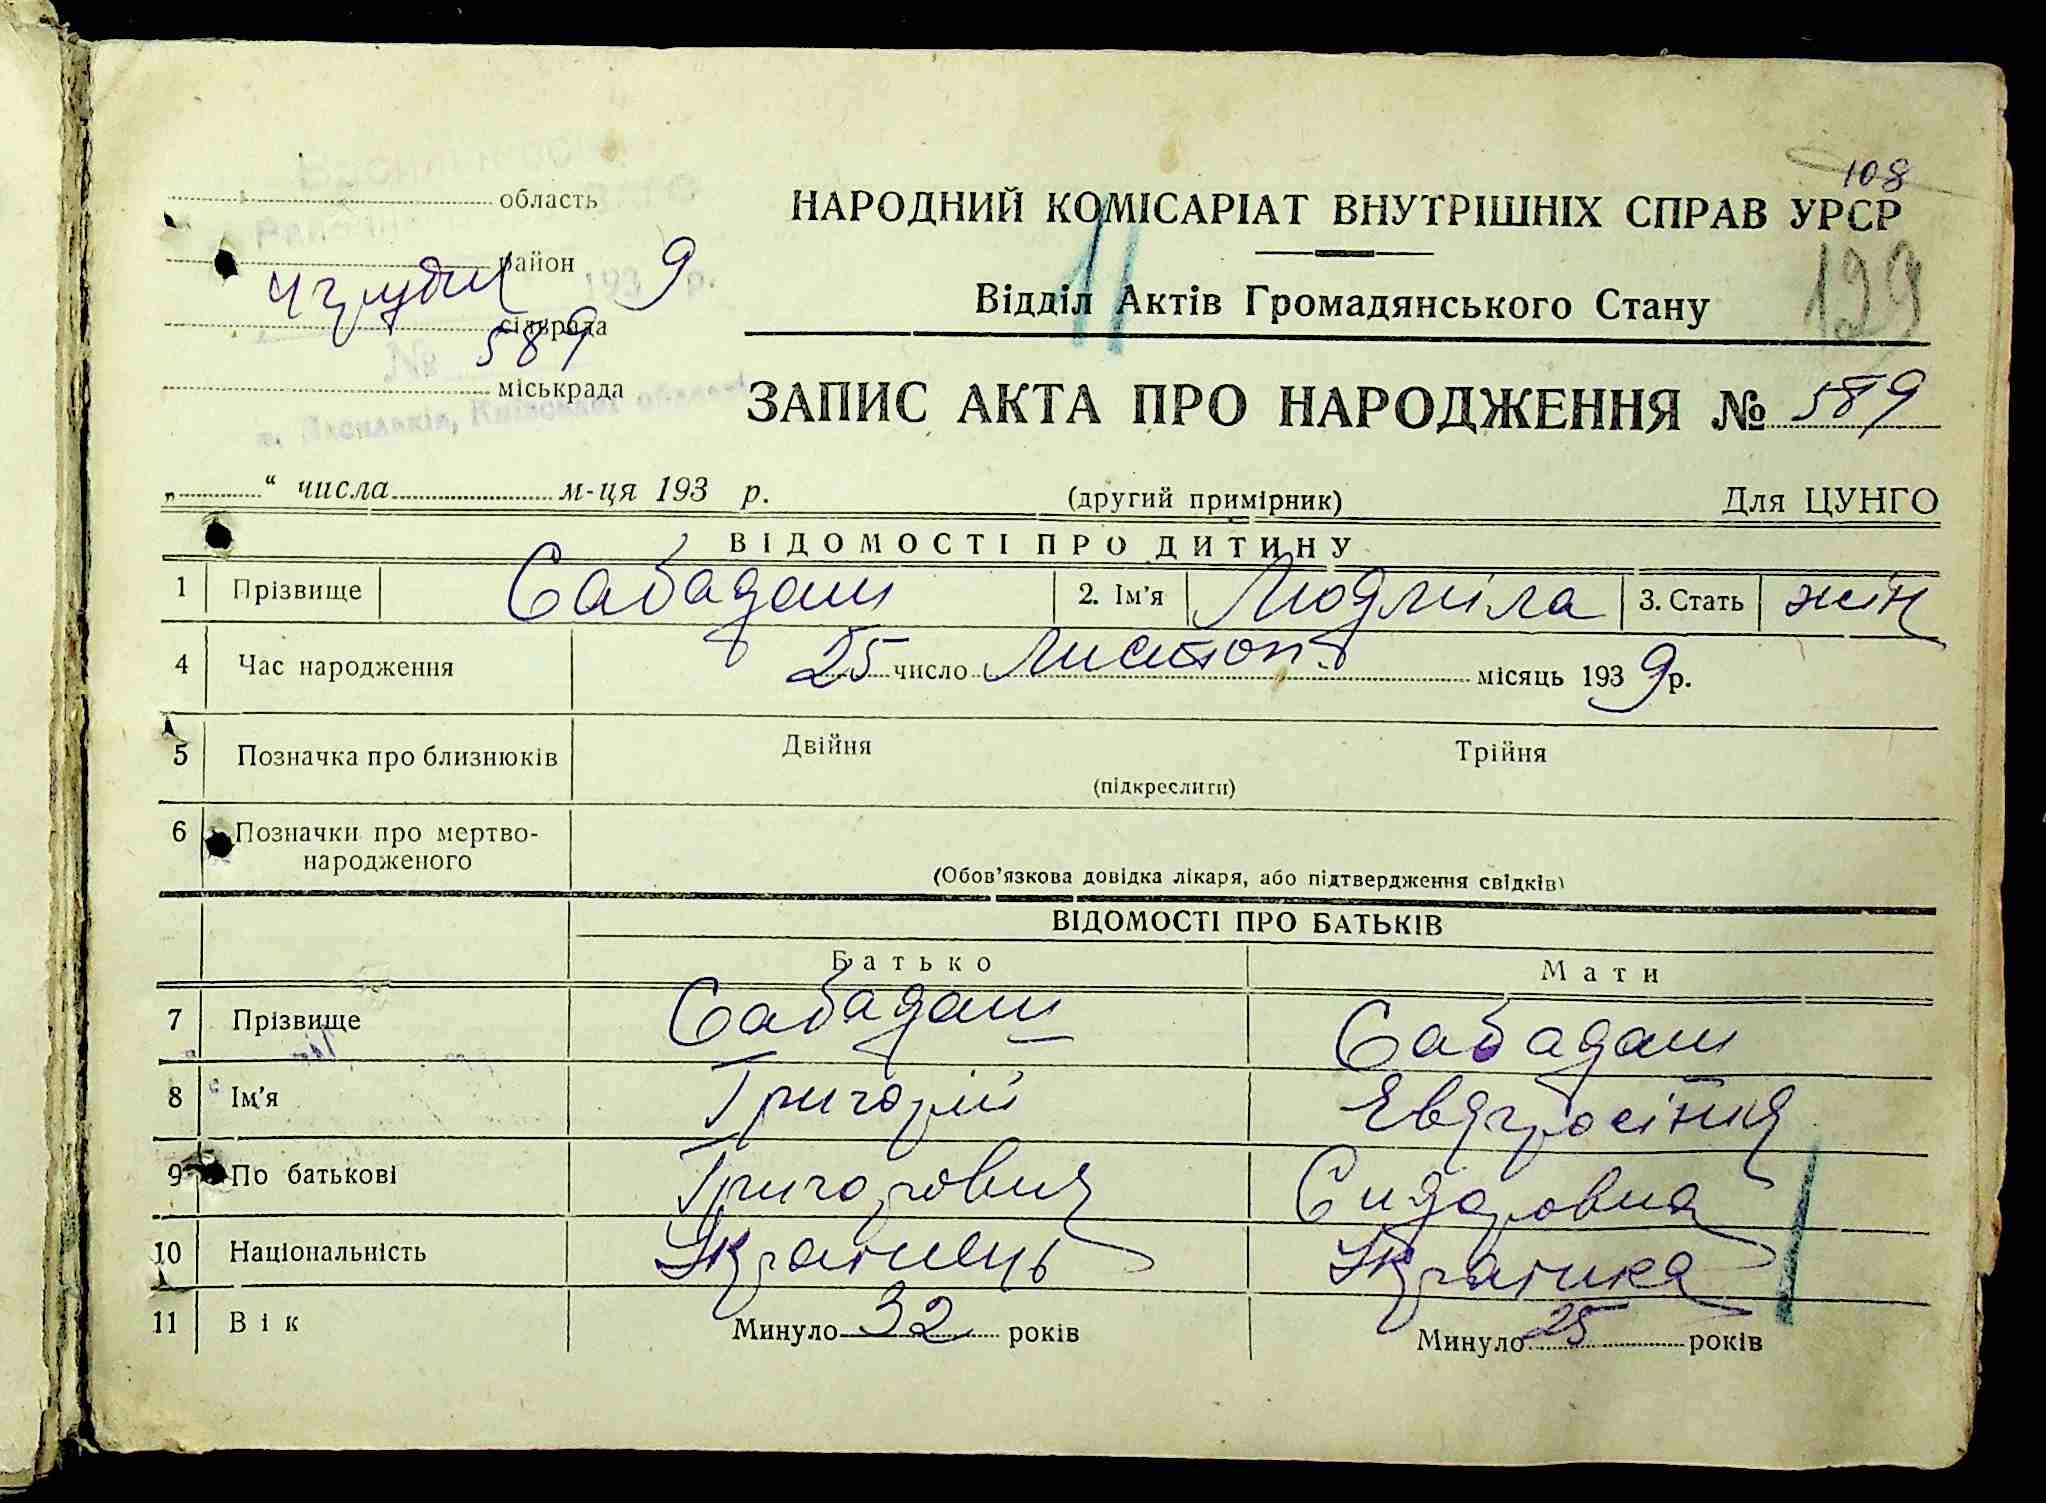 108
область
НАРОДНИЙ КОМІСАРІАТ ВНУТРІШНІХ СПРАВ УРСР
район
4 грудня 1939 р.
129
Відділ Актів Громадянського Стану
сільрада
№ 589
міськрада
м. Васильків, Київської області
ЗАПИС АКТА ПРО НАРОДЖЕННЯ № 589
„ “ числа м-ця 193 р.
(другий примірник)
Для ЦУНГО
ВІДОМОСТІ ПРО ДИТИНУ
1 Прізвище Сабадаш 2. Ім’я Людміла 3. Стать жін
4 Час народження 25 число Листоп. місяць 1939 р.
5 Позначка про близнюків Двійня Трійня
(підкреслити)
6 Позначки про мертво-
народженого
(Обов’язкова довідка лікаря, або підтвердження свідків)
ВІДОМОСТІ ПРО БАТЬКІВ
Батько Мати
7 Прізвище Сабадаш Сабадаш
8 Ім’я Григорій
9 По батькові Григорович Сидоровна
10 Національність Українець Українка
11 Вік Минуло 32 років Минуло 25 років